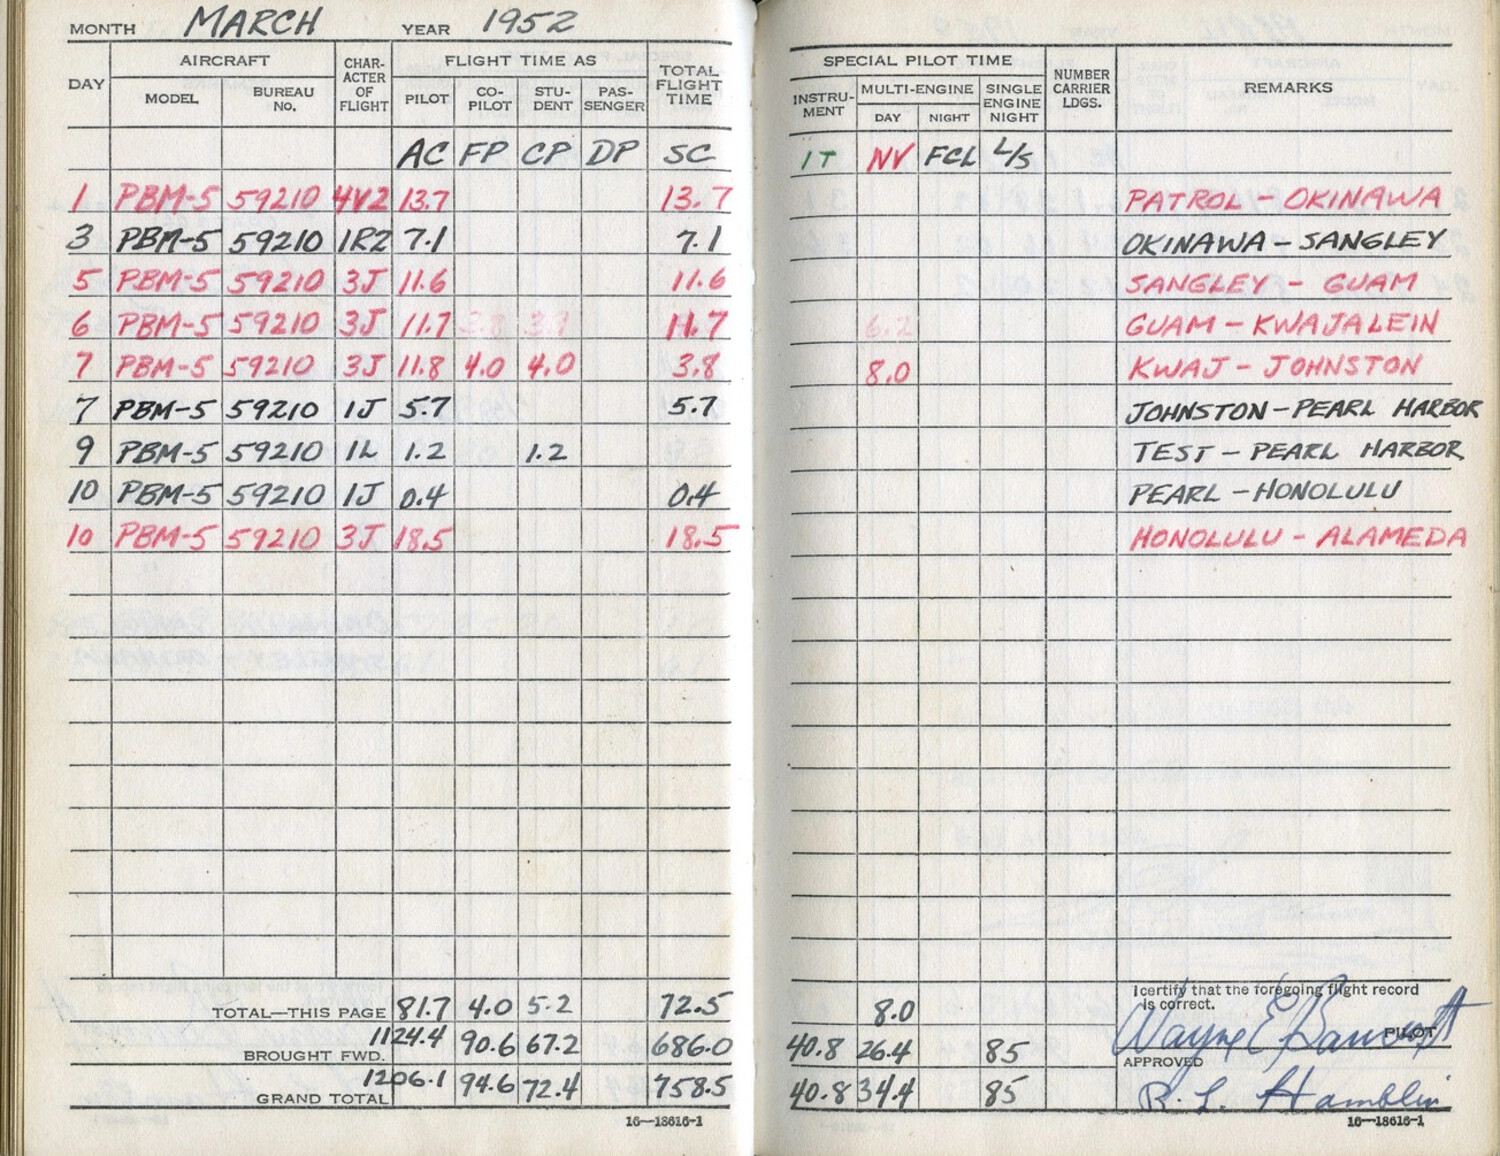 MONTH MARCH YEAR 1952
DAY AIRCRAFT MODEL BUREAU No. CHAR-ACTER OF FLIGHT FLIGHT TIME AS PILOT CO-PILOT STU-DENT PAS-SENGER TOTAL FLIGHT TIME
AC FP CP DP SC
1 PBM-5 59210 4V2 13.7 13.7
3 PBM-5 59210 1R2 7.1 7.1
5 PBM-5 59210 3J 11.6 11.6
6 PBM-5 59210 3J 11.7 3.8 3.9 11.7
7 PBM-5 59210 3J 11.8 4.0 4.0 3.8
7 PBM-5 59210 1J 5.7 5.7
9 PBM-5 59210 1L 1.2 1.2
10 PBM-5 59210 1J 0.4 0.4
10 PBM-5 59210 3J 18.5 18.5
TOTAL—THIS PAGE 81.7 4.0 5.2 72.5
BROUGHT FWD. 1124.4 90.6 67.2 686.0
GRAND TOTAL 1206.1 94.6 72.4 758.5
16—18616-1
SPECIAL PILOT TIME INSTRU-MENT MULTI-ENGINE DAY NIGHT SINGLE ENGINE NIGHT NUMBER CARRIER LDGS. REMARKS
IT NV FCL L/S
PATROL - OKINAWA
OKINAWA - SANGLEY
SANGLEY - GUAM
6.2 GUAM - KWAJALEIN
8.0 KWAJ - JOHNSTON
JOHNSTON - PEARL HARBOR
TEST - PEARL HARBOR
PEARL - HONOLULU
HONOLULU - ALAMEDA
8.0
I certify that the foregoing flight record is correct.
40.8 26.4 85
Wayne E Bancroft PILOT
APPROVED
40.8 34.4 85
R. L. Hamblin
16—18616-1